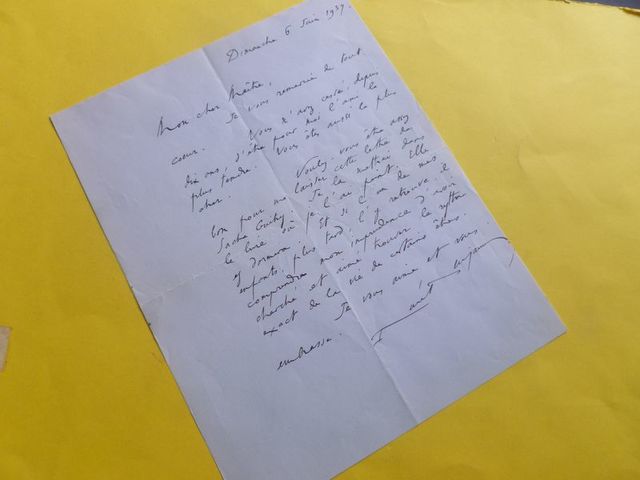 Dimanche 6 Juin 1937.
Mon cher Maître,
Je vous remercie de tout
coeur. Vous n'avez cessé, depuis
dix ans, d'être pour moi l'ami le
plus tendre. Vous êtes aussi le plus
cher.
Voulez-vous être assez
bon pour me laisser cette lettre de
Sacha Guitry. Je la mettrai dans
le livre où je l'ai peint. Elle
y dormira. Et si l'un de mes
enfants, plus tard, l'y retrouve, il
comprendra mon imprudence d'avoir
cherché et aimé trouver le rythme
exact de la vie de certains êtres.
Je vous aime et vous
embrasse.